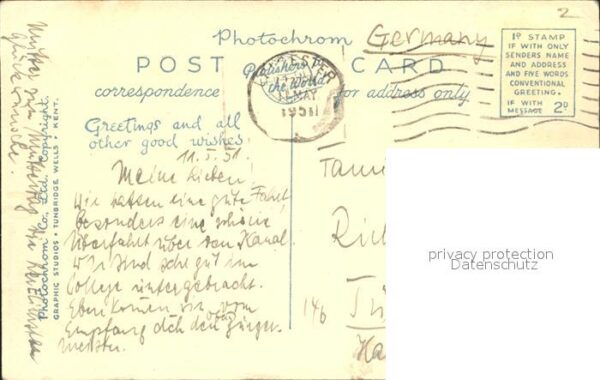 2
Photochrom
Germany
POST CARD
Publishers to the World
correspondence
for address only
Greetings and all
other good wishes
1D STAMP
IF WITH ONLY
SENDERS NAME
AND ADDRESS
AND FIVE WORDS
CONVENTIONAL
GREETING.
IF WITH MESSAGE 2D
MAY
1951
11.5.51.
Meine Lieben!
Wir hatten eine gute Fahrt
besonders eine schöne
Überfahrt über den Kanal.
Wir sind sehr gut im
College untergebracht.
Eben kommen wir vom
Empfang durch den Bürger-
meister.
Photochrom Co., Ltd. Copyright.
GRAPHIC STUDIOS • TUNBRIDGE WELLS • KENT.
14b
privacy protection
Datenschutz